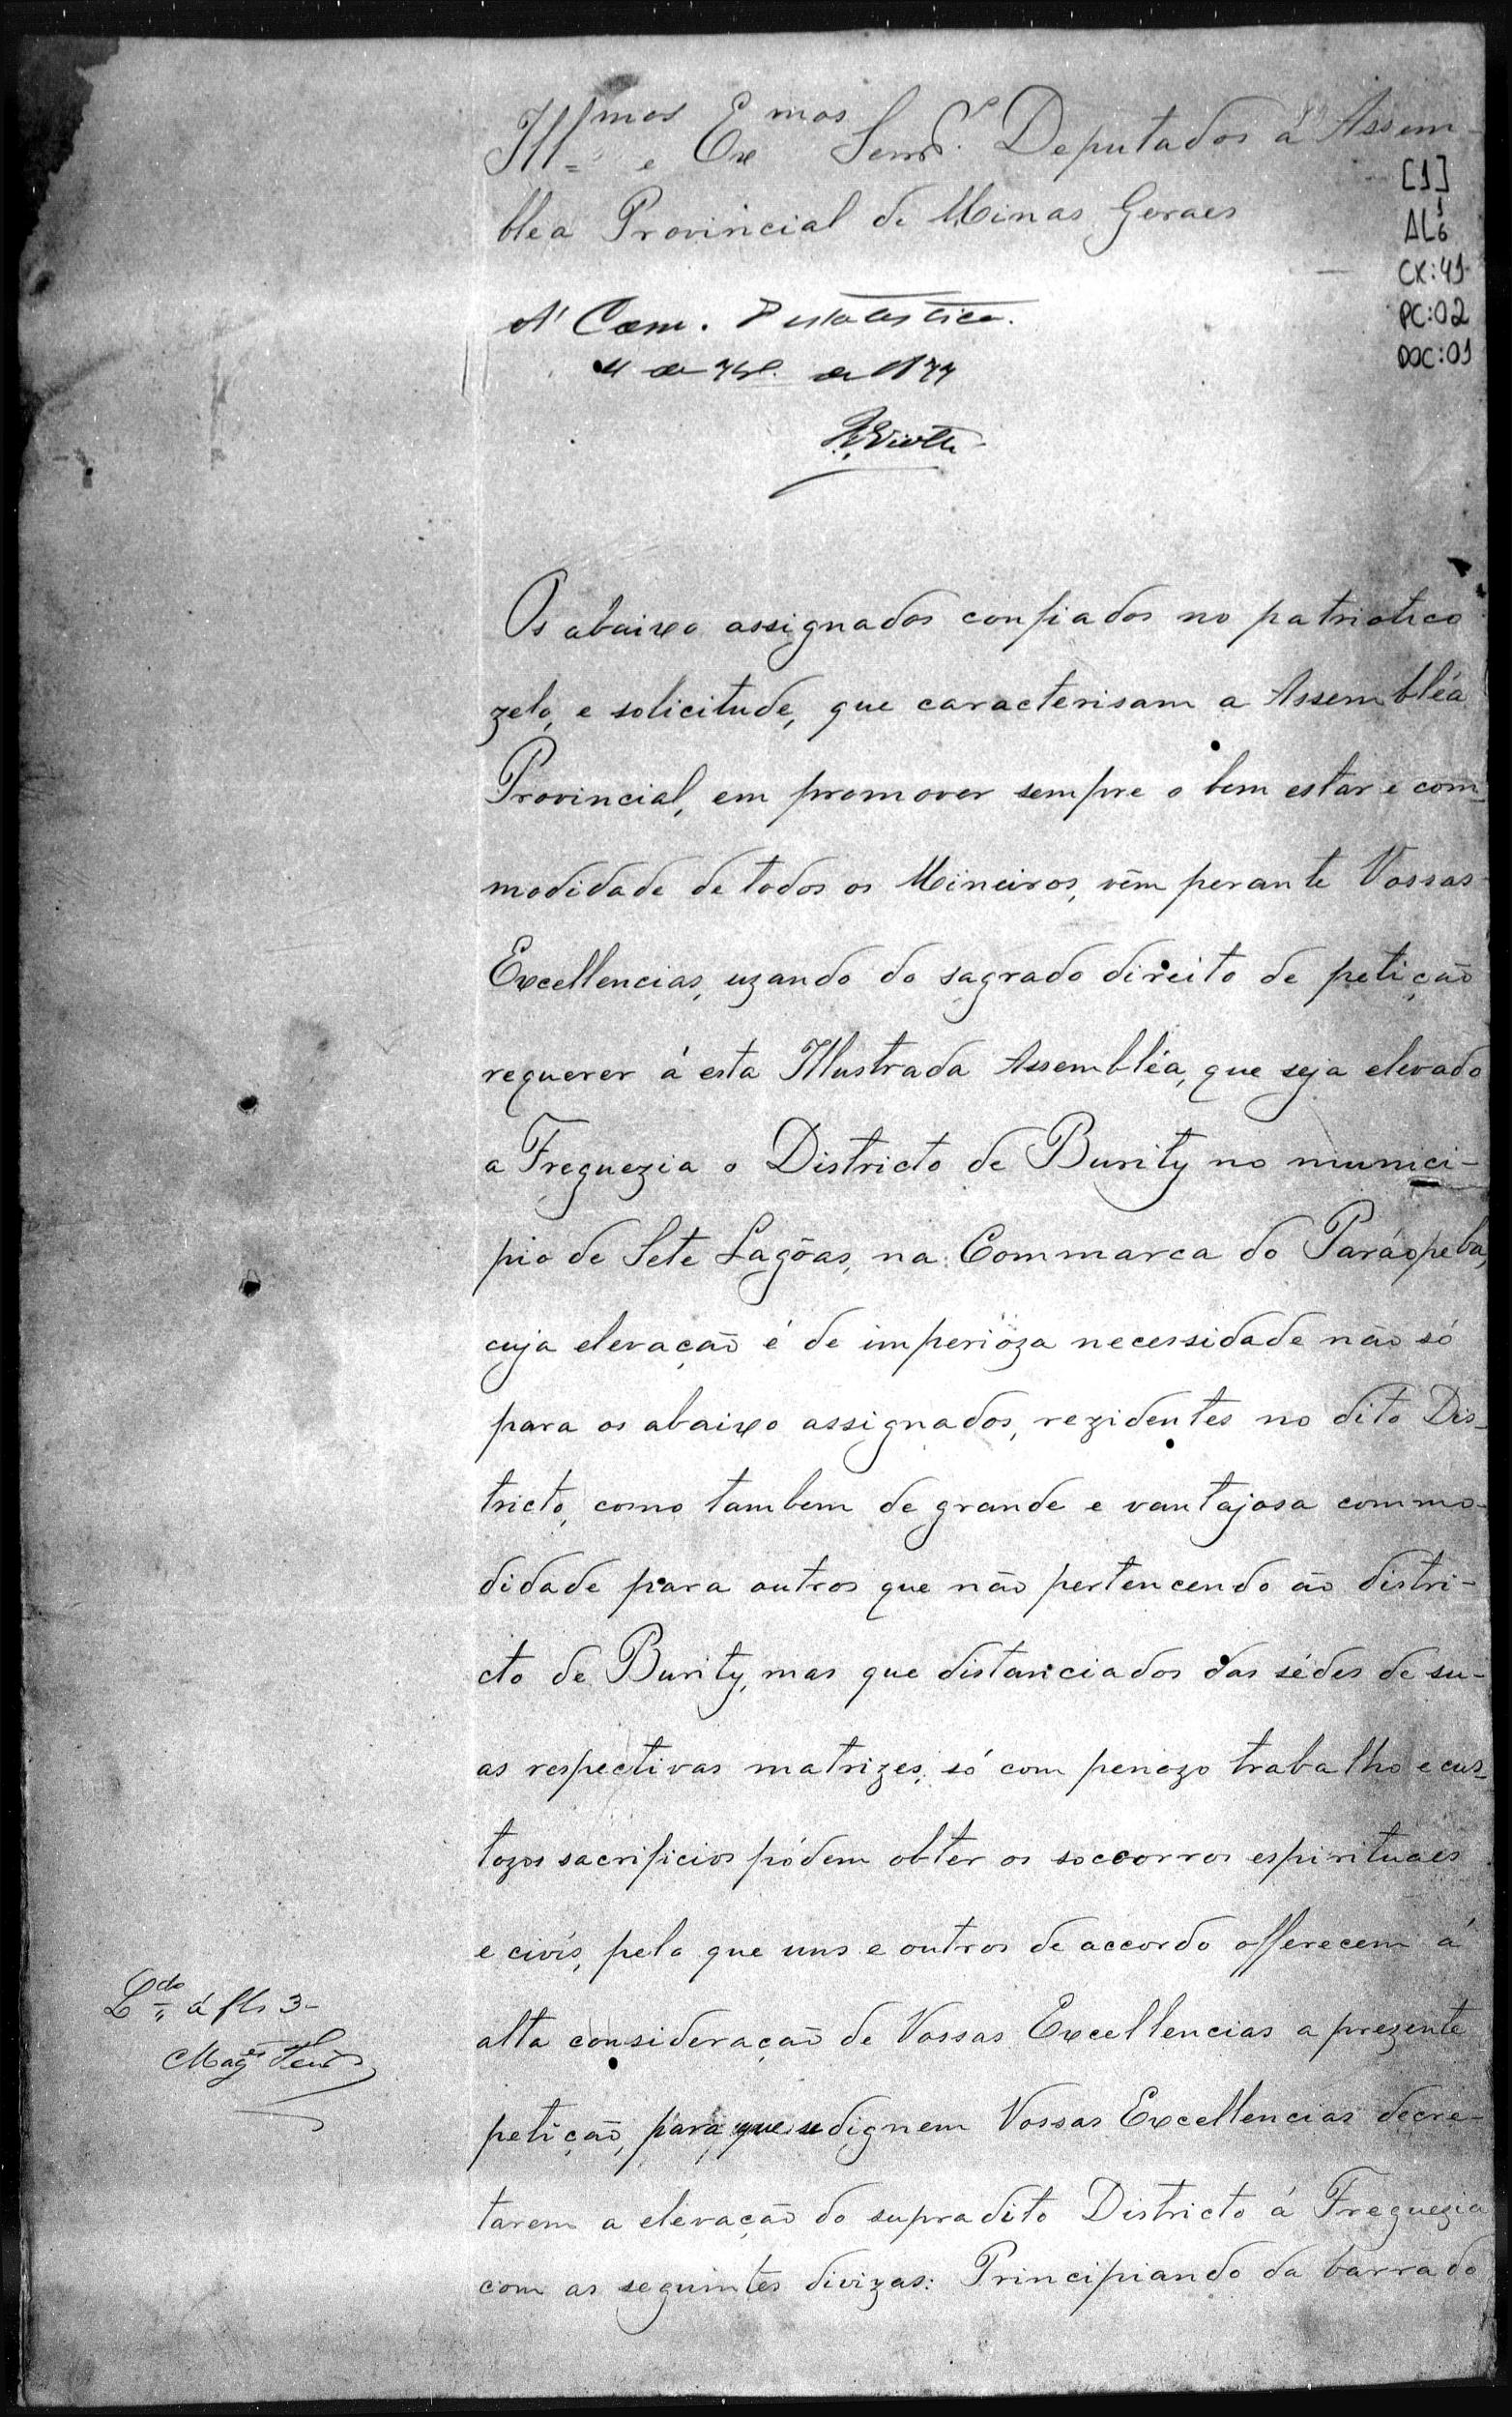 Ill.mos e Ex.mos Senr.s Deputados á Assem-
blea Provincial de Minas Geraes
[1]
AL 1/6
CX:41
PC:02
DOC:01
A' Com. d'estatistica.
de 1877
Os abaixo assignados confiados no patriotico
zelo, e solicitude, que caracterisam a Assembléa
Provincial, em promover sempre o bem estar e com-
modidade de todos os Mineiros, vêm perante Vossas
Excellencias, uzando do sagrado direito de petição
requerer á esta Illustrada Assembléa, que seja elevado
a Freguezia o Districto de Burity no munici-
pio de Sete Lagôas, na Commarca do Paráopeba,
cuja elevação é de imperioza necessidade não só
para os abaixo assignados, rezidentes no dito Dis-
tricto, como tambem de grande e vantajosa commo-
didade para outros que não pertencendo ão distri-
cto de Burity, mas que distanciados das sédes de su-
as respectivas matrizes, só com penozo trabalho e cus-
tozos sacrificios pódem obter os soccorros espirituaes
e civís, pelo que uns e outros de accordo offerecem á
alta consideração de Vossas Excellencias a prezente
petição, para que se dignem Vossas Excellencias decre-
tarem a elevação do supradito Districto á Freguezia
com as seguintes divizas: Principiando da barra do
L.do á fls 3-